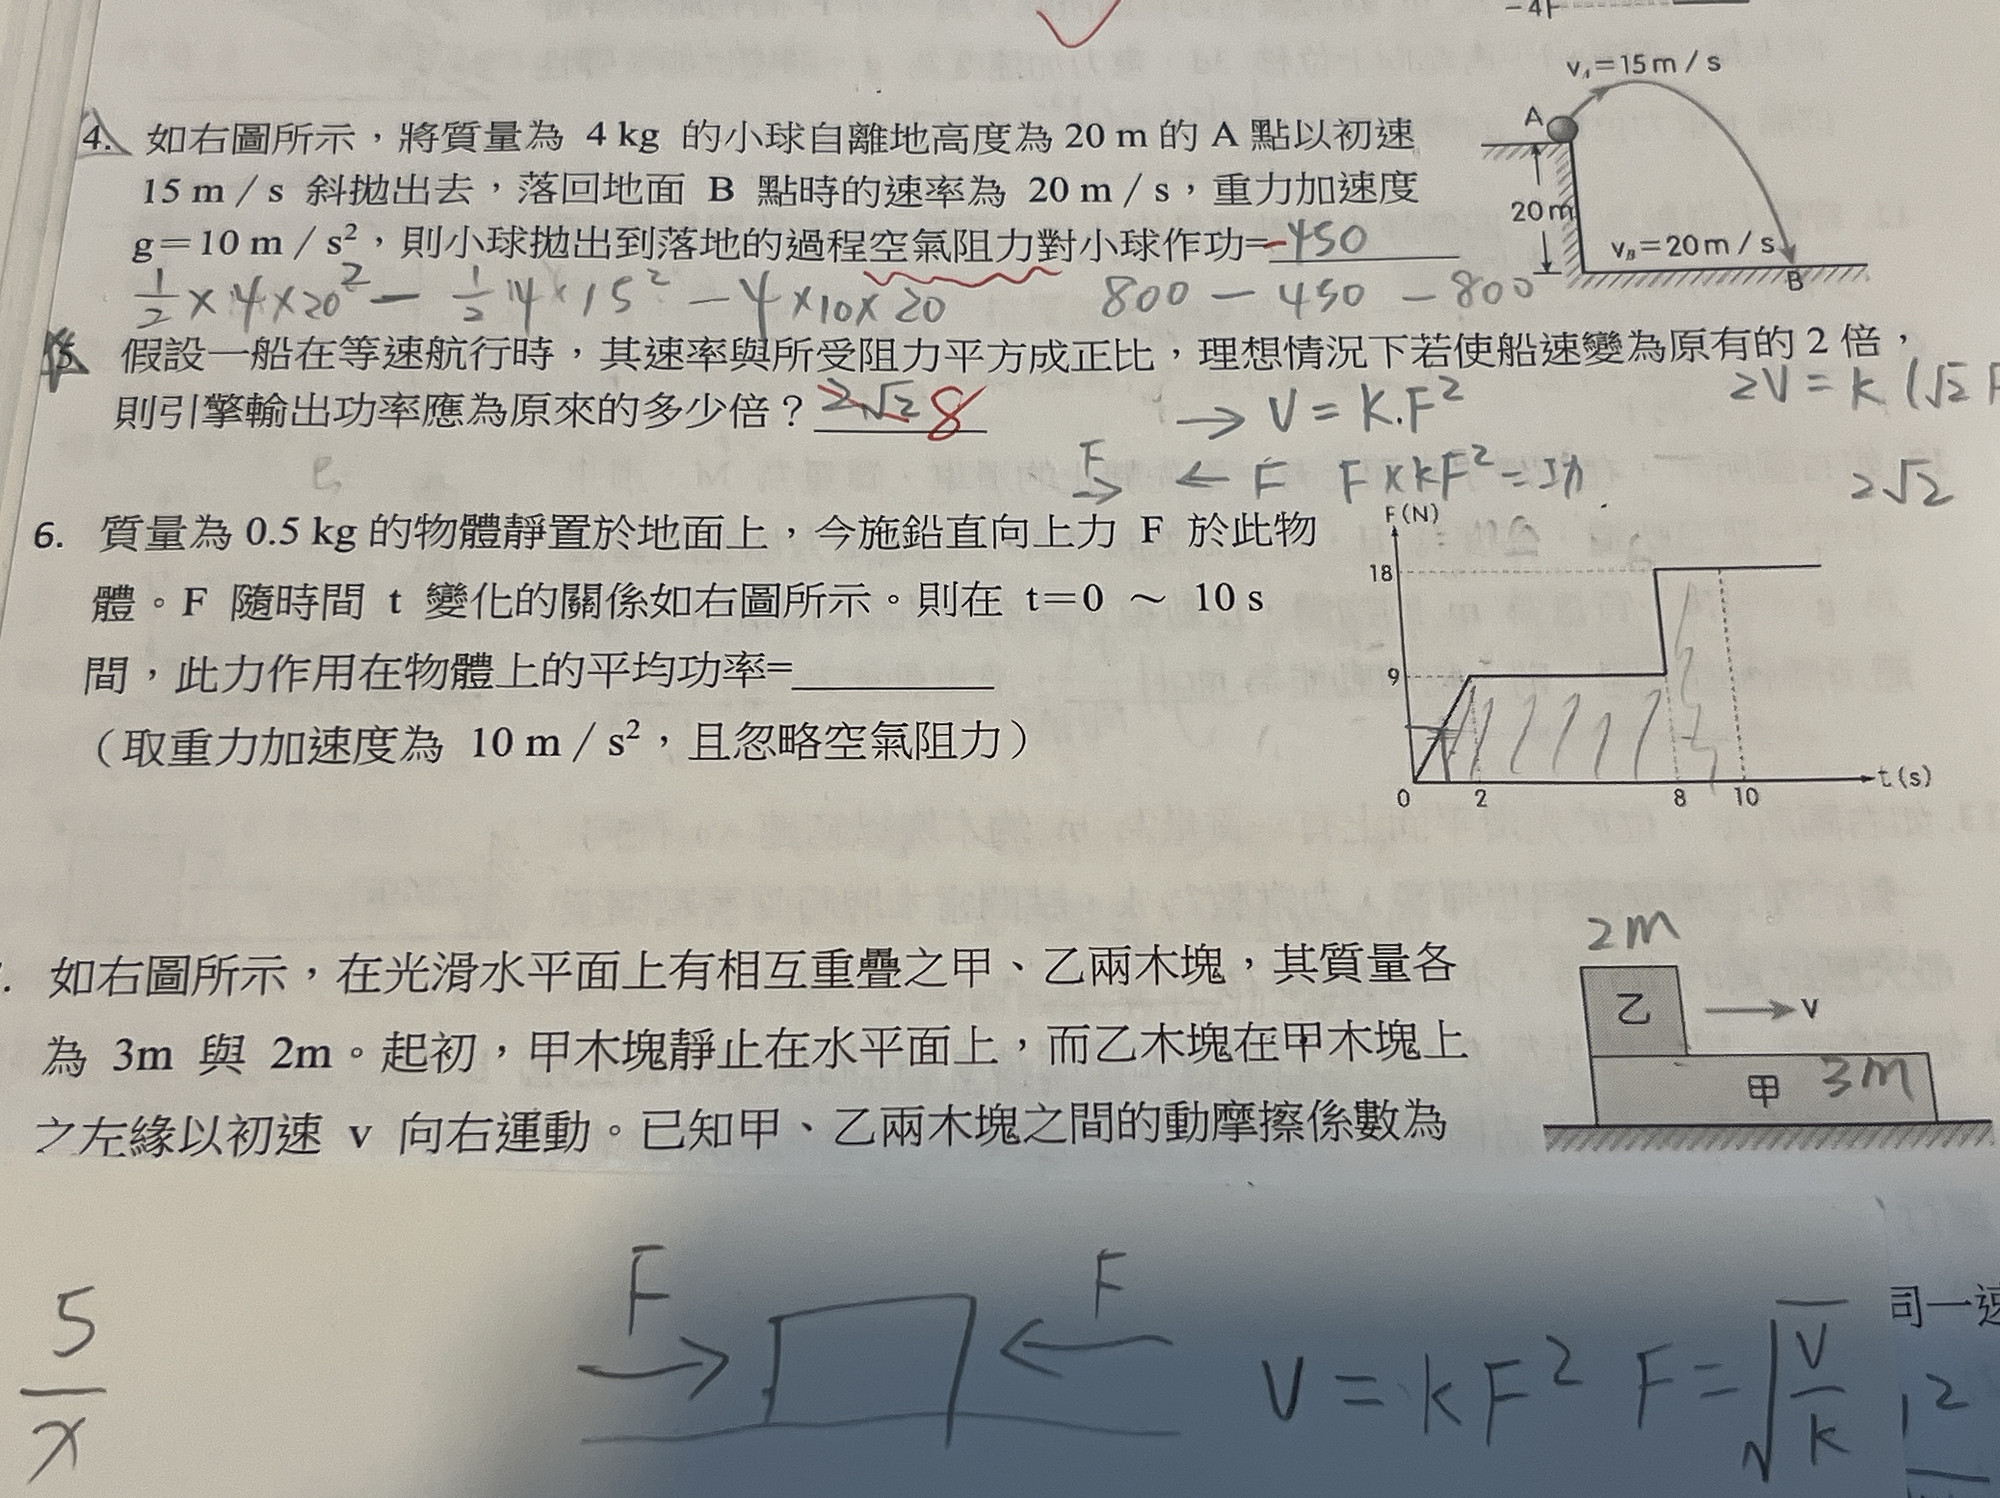 -4F
4. 如右圖所示，將質量為 4 kg 的小球自離地高度為 20 m 的 A 點以初速
15 m / s 斜拋出去，落回地面 B 點時的速率為 20 m / s，重力加速度
g＝10 m / s²，則小球拋出到落地的過程空氣阻力對小球作功=-450
½ × 4 × 20² - ½ 4 × 15² - 4 × 10 × 20
800 - 450 - 800
v_A＝15 m / s
A
20 m
v_B＝20 m / s
B
5. 假設一船在等速航行時，其速率與所受阻力平方成正比，理想情況下若使船速變為原有的 2 倍，
則引擎輸出功率應為原來的多少倍？2√2 8
→ V = K.F²
2V = K (√2 F
F → ← F F×kF² = 功
2√2
6. 質量為 0.5 kg 的物體靜置於地面上，今施鉛直向上力 F 於此物
體。F 隨時間 t 變化的關係如右圖所示。則在 t＝0 ～ 10 s
間，此力作用在物體上的平均功率=
（取重力加速度為 10 m / s²，且忽略空氣阻力）
F (N)
18
9
0 2 8 10 t (s)
. 如右圖所示，在光滑水平面上有相互重疊之甲、乙兩木塊，其質量各
為 3m 與 2m。起初，甲木塊靜止在水平面上，而乙木塊在甲木塊上
之左緣以初速 v 向右運動。已知甲、乙兩木塊之間的動摩擦係數為
2m
乙 v
甲 3m
司一速
5/x
F F
V = kF² F = √(V/k)